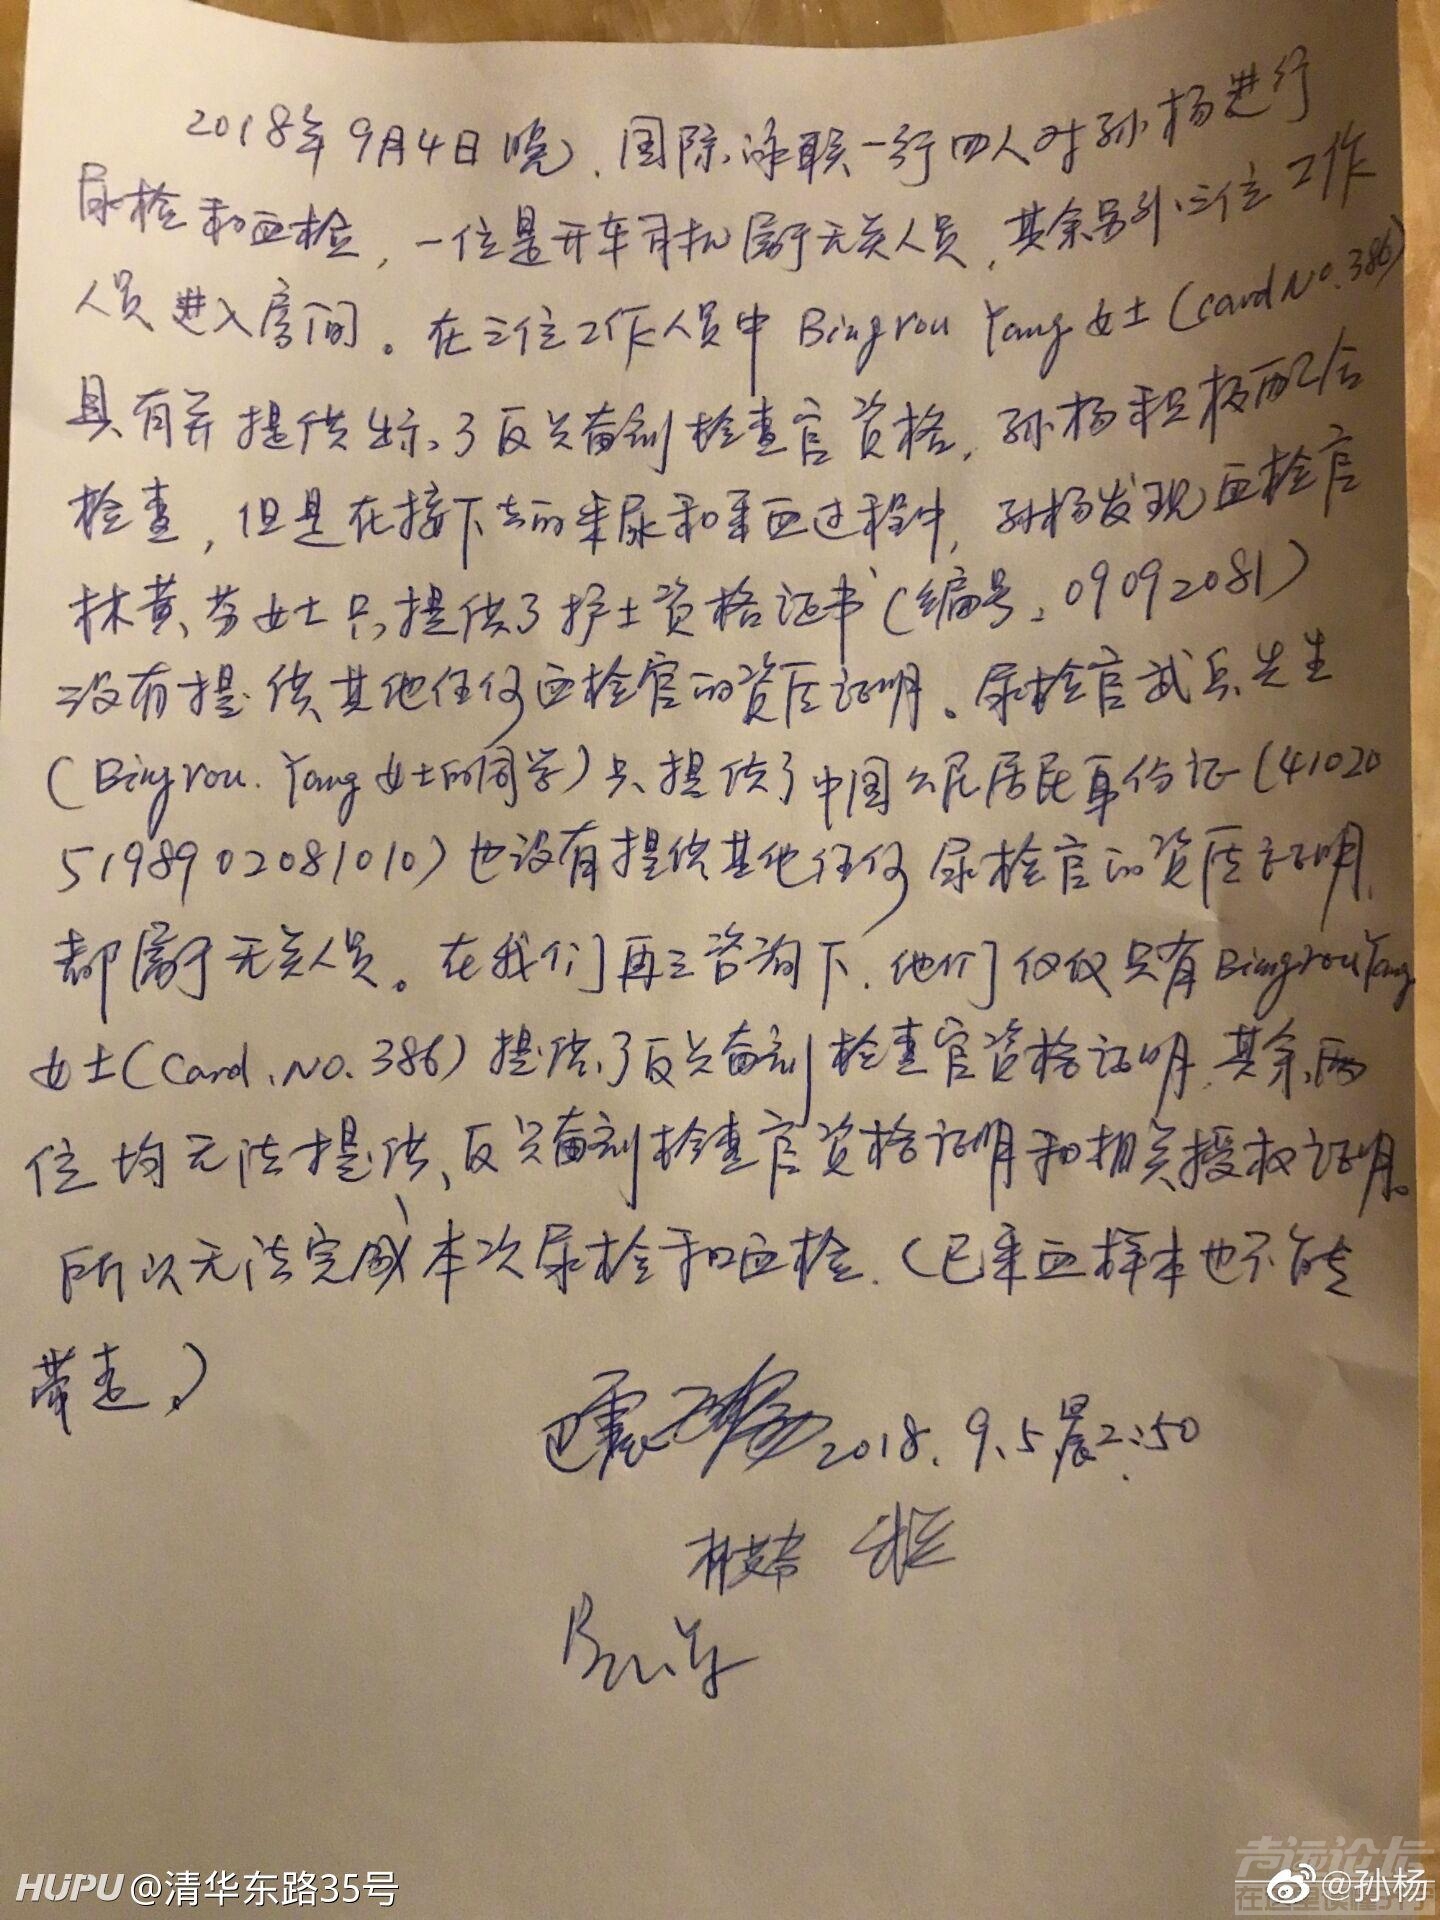 2018年9月4日晚，国际泳联一行四人对孙杨进行
尿检和血检，一位是开车司机属于无关人员，其余另外三位工作
人员进入房间。在三位工作人员中 Bingrou Yang 女士（card No.386）
具有并提供出示了反兴奋剂检查官资格，孙杨积极配合
检查，但是在接下去的采尿和采血过程中，孙杨发现血检官
林黄芬女士只提供了护士资格证书（编号：09092081）
没有提供其他任何血检官的资质证明。尿检官武兵先生
（Bingrou.Yang女士的同学）只提供了中国公民居民身份证（41020
5198902081010）也没有提供其他任何尿检官的资质证明，
都属于无关人员。在我们再三咨询下，他们仅仅只有Bingrou Yang
女士（Card.No.386）提供了反兴奋剂检查官资格证明，其余两
位均无法提供反兴奋剂检查官资格证明和相关授权证明。
所以无法完成本次尿检和血检.（已采血样本也不能
带走。）
巴震 2018.9.5晨2:50
HUPU @清华东路35号
@孙杨